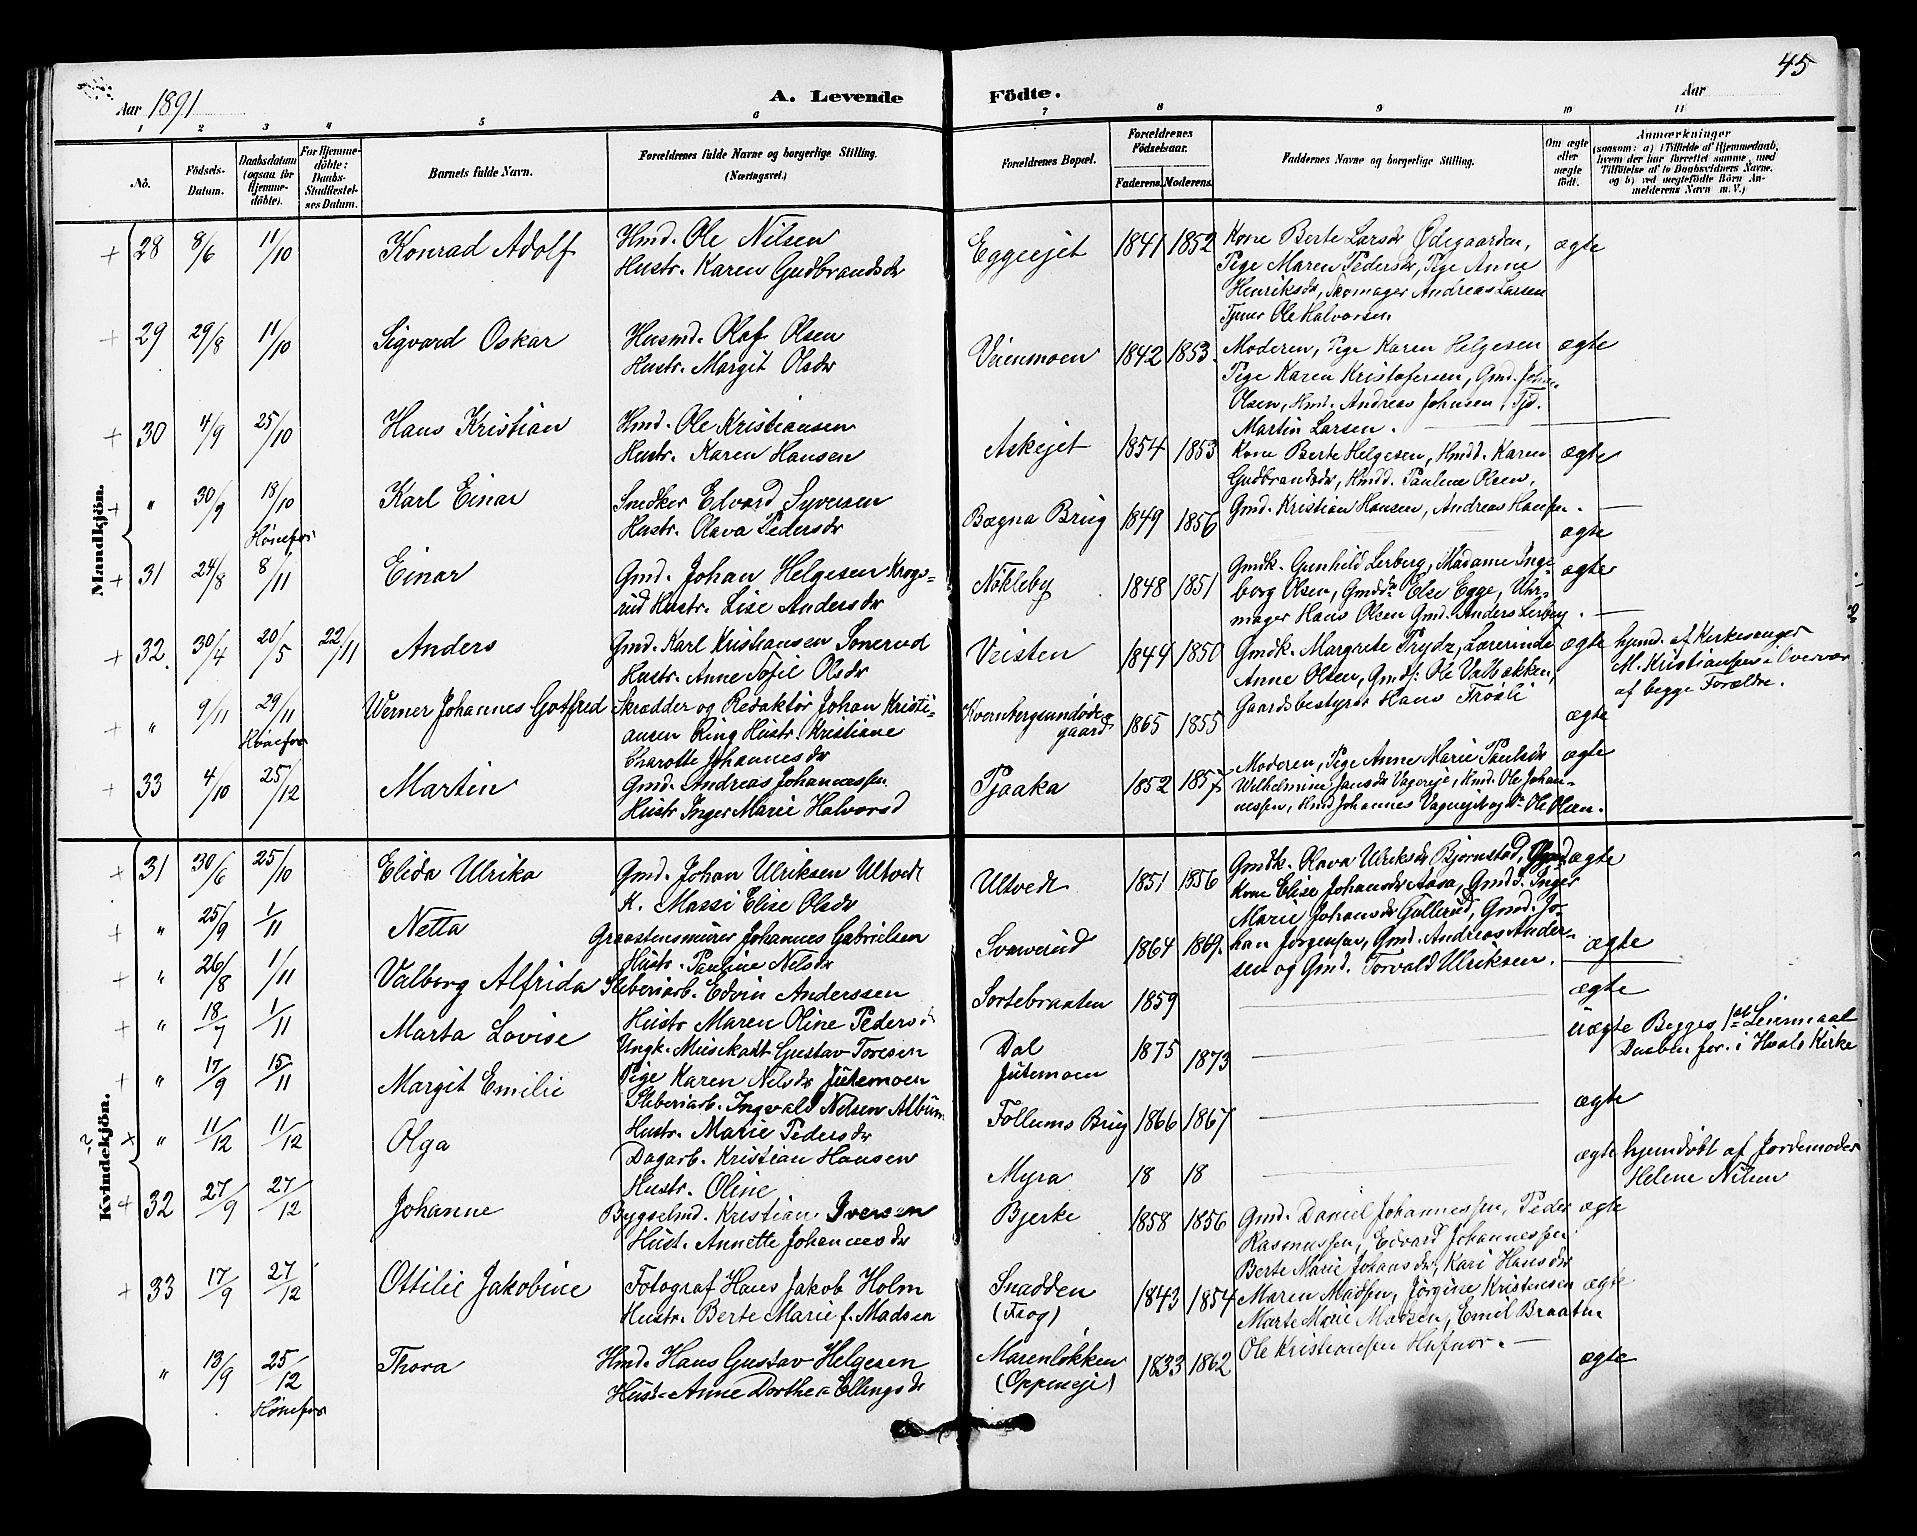 45
Aar 1891
A. Levende Födte.
Aar
1 2 3 4 5 6 7 8 9 10 11
No.
Födsels-Datum.
Daabsdatum (ogsaa for Hjemme-döbte).
For Hjemme-döbte: Daabs-Stadfæstel-ses Datum.
Barnets fulde Navn.
Forældrenes fulde Navne og borgerlige Stilling.
(Næringsvei.)
Forældrenes Bopæl.
Forældrenes Födselsaar.
Faderens. Moderens.
Faddernes Navne og borgerlige Stilling.
Om ægte eller uægte födt.
Anmærkninger
(saasom: a) i Tilfælde af Hjemmedaab,
hvem der har forrettet samme, med
Tilföielse af to Daabsvidners Navne,
og b) ved uægtefödte Börn An-
melderens Navn m. V.)
Mandkjön.
28 8/6 11/10 Konrad Adolf
Hmd. Ole Nilsen
Hustr. Karen Gudbrandsdr
Eggeejet 1841 1852
Kone Berte Larsdr Ødegaarden,
Pige Maren Pedersdr, Pige Anne
Henriksdr, Skomager Andreas Larsen
Tjener Ole Halvorsen
ægte
29 29/8 11/10 Sigvard Oskar
Husmd. Olaf Olsen
Hustr. Margit Olsdr
Veienmoen 1842 1853.
Moderen, Pige Karen Helgesen
Pige Karen Kristofersen, Gmd. Johan
Olsen, Hmd. Andreas Johnsen, Tjd.
Martin Larsen.
ægte
30 4/9 25/10 Hans Kristian
Hmd. Ole Kristiansen
Hustr. Karen Hansen
Askejet 1854 1853
Kone Berte Helgesen, Hmdd. Karen
Gudbrandsdr, Hmdd. Pauline Olsen,
Gmd. Kristian Hansen, Andreas Hansen.
ægte
" 30/9 18/10 Hönefos Karl Einar
Snedker Edvard Syversen
Hustr. Olava Pedersdr
Bægna Brug 1849 1856
ægte
31 24/8 8/11 Einar
Gmd. Johan Helgesen Krogs-
rud Hustr. Lise Andersdr
Nökleby 1848 1851
Gmdk. Gunhild Lerberg, Madame Inge-
borg Olsen, Gmdd. Else Egge, Uhr-
mager Hans Olsen Gmd. Anders Lerberg.
ægte
32. 30/4 20/5 22/11 Anders
Gmd. Karl Kristiansen Sonerud
Hustr. Anne Sofie Olsdr
Veisten 1844 1850
Gmdk. Margrete Trydz, Lærerinde
Anne Olsen, Gmds. Ole Valbakken,
Gaardsbestyrer Hans Frösli
ægte
hjemd. af Kirkesanger
M. Kristiansen i Overvær
af begge Forældre.
" 9/11 29/11 Hönefos Werner Johannes Gotfred
Skrædder og Redaktör Johan Kristi-
ansen Ring Hustr. Kristiane
Charotte Johannesdr
Kvernbergsundöde-
gaard 1865 1855
ægte
33 4/10 25/12 Martin
Gmd. Andreas Johannessen
Hustr. Inger Marie Halvorsd
Tjaaka 1852 1857
Moderen, Pige Anne Marie Paulsdr
Wilhelmine Jansdr Vagereje, Hmd. Ole Johan-
nessen, Hmd Johannes Vagnejet og Ole Olsen.
ægte
Kvindekjön.
31 30/6 25/10 Elida Ulrika
Gmd. Johan Ulriksen Ultvedt
K. Massi Elise Olsdr
Ultvedt 1851 1856
Gmdk. Olava Ulriksdr Bjørnstad,
Kone Elise Johansdr Aasa, Gmdd. Inger
Marie Johansdr Gullerud, Gmd. Jo-
han Jörgensen, Gmd. Andreas Ander-
sen og Gmd. Torvald Ulriksen.
ægte
" 25/9 1/11 Netta
Graastensmurer Johannes Gabrielsen
Hustr. Pauline Nelsdr
Svarverud 1864 1869.
ægte
" 26/8 1/11 Valborg Alfrida
Sliberiarb. Edvin Anderssen
Hustr Maren Oline Pedersd
Sortebraaten 1859
ægte
" 18/7 1/11 Marta Lovise
Ungk. Musikant Gustav Toresen
Pige Karen Nelsdr Jutemoen
Dal
Jutemoen 1875 1873
uægte
Begges 1ste Leiermaal
Daaben for. i Hvals Kirke
" 17/9 15/11 Margit Emilie
Sliberiarb. Ingvald Nelsen Album
Hustr. Marie Pedersdr
Follums Brug 1866 1867
ægte
" 11/12 11/12 Olga
Dagarb. Kristian Hansen
Hustr. Oline
Myra 18 18
ægte
hjemdöbt af Jordemoder
Helene Nilsen
32 27/9 27/12 Johanne
Bygselmd. Kristian Iversen
Hust. Annette Johannesdr
Bjerke 1858 1856
Gmd. Daniel Johannessen, Peder
Rasmussen, Edvard Johannessen
Berte Marie Johansdr, Kari Hansdr
ægte
33 17/9 27/12 Ottilie Jakobine
Fotograf Hans Jakob Holm
Hustr. Berte Marie f. Madsen
Snadden
(Frog) 1843 1854
Maren Madsen, Jörgine Kristensen
Marte Marie Madsen, Emil Braaten
Ole Kristiansen Hafnor.
ægte
" 13/9 25/12 Hönefos Thora
Hmd. Hans Gustav Helgesen
Hust. Anne Dorthea Ellingsdr
Marenlökken
(Oppeneje) 1833 1862
ægte